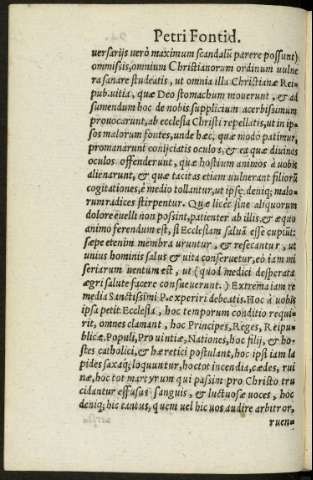 Petri Fontid.
uersarijs uerò maximum scandalũ parere possunt)
ommissis, omnium Christianorum ordinum uulne
ra sanare studeatis, ut omnia illa Christianæ Rei-
pub. uitia, quæ Deo stomachum mouerunt, & ad
sumendum hoc de nobis supplicium acerbissimum
prouocarunt, ab ecclesia Christi repellatis, ut in ip-
sos malorum fontes, unde hæc, quæ modò patimur,
promanarunt conijciatis oculos, & ea quæ diuinos
oculos offenderunt, quæ hostium animos à uobis
alienarunt, & quæ tacitas etiam uulnerant filiorũ
cogitationes, è medio tollantur, ut ipsę deniq; malo-
rum radices stirpentur. Quæ licèt sine aliquorum
dolore euelli non possint, patienter ab illis, & æquo
animo ferendum est, si Ecclesiam saluã esse cupiũt:
sæpe etenim membra uruntur, & resecantur, ut
unius hominis salus & uita conseruetur, eò iam mi
seriarum uentum est, ut (quod medici desperata
ægri salute facere consueuerunt.) Extrema iam re
media Sanctissimi P. experiri debeatis. Hoc à uobis
ipsa petit Ecclesia, hoc temporum conditio requi-
rit, omnes clamant, hoc Principes, Reges, Reipu-
blicæ. Populi, Prouintiæ, Nationes, hoc filij, & ho-
stes catholici, & hæretici postulant, hoc ipsi iam la
pides saxaq; loquuntur, hoc tot incendia, cædes, rui
næ, hoc tot martyrum qui passim pro Christo tru
cidantur effusus sanguis, & luctuosæ uoces, hoc
deniq; hic cantus, quem uel hic uos audire arbitror,
ruen-